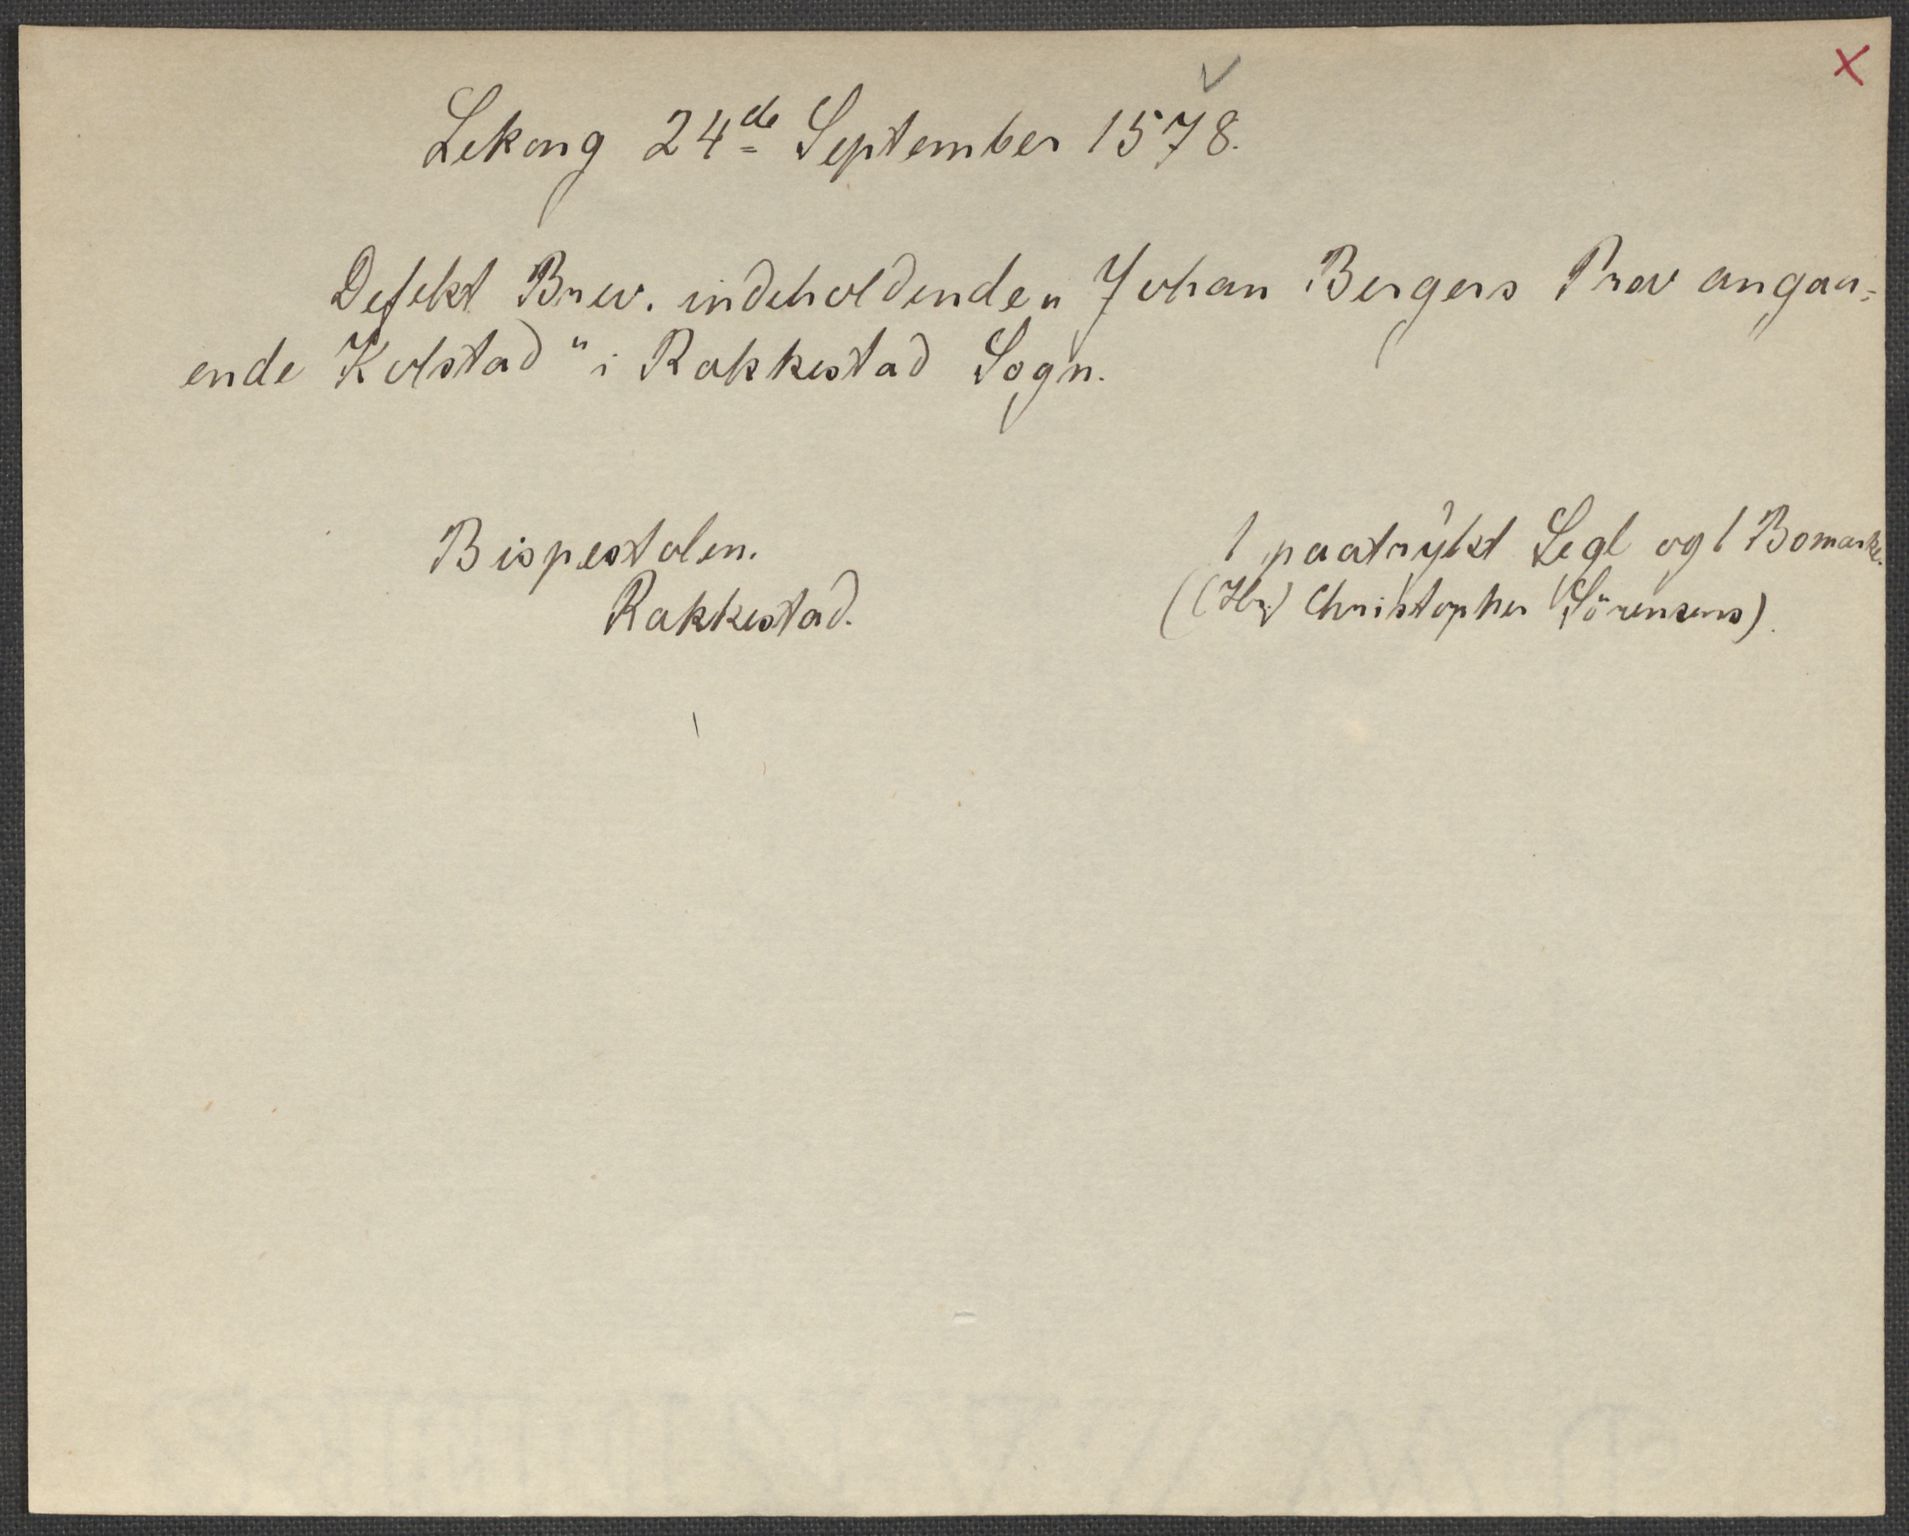 Lekong 24de September 1578.
Defekt Brev. indeholdende „ Johan Bergers Prov angaa=
ende Kolstad " i Rakkestad Sogn.
Bispestolen.
Rakkestad.
1 paatrykt Segl og 1 Bomærke.
((Hr.) Christopher Sörensens).